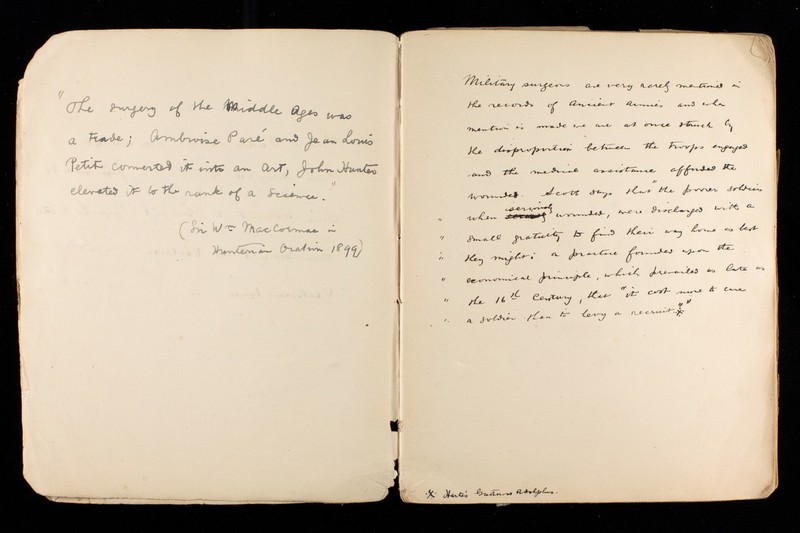 "The surgery of the Middle Ages was
a Trade; Ambroise Paré and Jean Louis
Petit converted it into an Art, John Hunter
elevated it to the rank of a Science."
(Sir Wm MacCormac in
Hunterian Oration 1899)
Military surgeons are very rarely mentioned in
the records of Ancient Armies and when
mention is made we are at once struck by
the disproportion between the troops engaged
and the medical assistance afforded the
wounded. Scott says that "the poorer soldiers
" when seriously wounded, were discharged with a
" small gratuity to find their way home as best
" they might: a practice founded upon the
" economical principle, which prevailed as late as
" the 16th Century, that "it cost more to cure
" a soldier than to levy a recruit."*"
* Harte's Gustavus Adolphus.